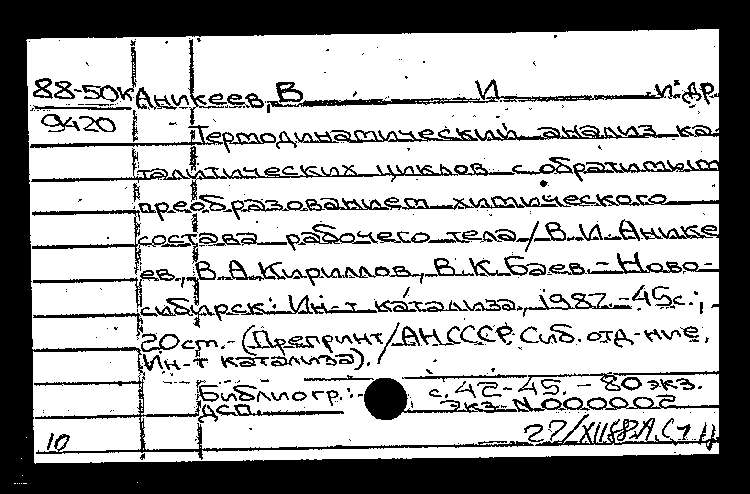 88-50К Аникеев, В И и др
9420
Термодинамический анализ ка-
талитических циклов с обратимым
преобразованием химического
состава рабочего тела / В. И. Анике
ев, В. А. Кириллов, В. К. Баев. - Ново-
сибирск: Ин-т катализа, 1987. - 45 с.;
20 cm. - (Препринт / АН СССР, Сиб. отд-ние,
Ин-т катализа).
Библиогр.: с. 42-45. - 80 экз.
ДСП. экз N 000002
10